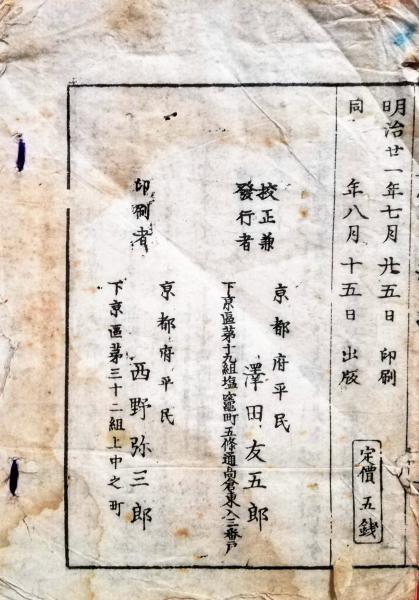 明治廿一年七月廿五日 印刷
同 年八月十五日 出版
定價 五錢
校正兼
發行者
京都府平民
澤田友五郎
下京區第十九組塩竈町五條通尚倉東入三番戸
印刷者
京都府平民
西野弥三郎
下京區第三十二組上中之町